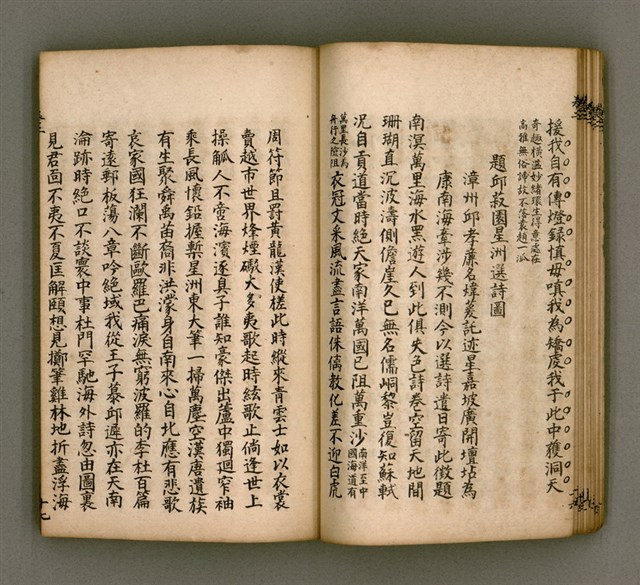 援我自有傳燈錄慎毋嗔我為矯虔我于此中獲洞天
奇趣橫溢妙緒環生得意處在
高推無俗諦故不落袁趙一派
題邱叔園星洲選詩圖
漳州邱孝廉名煒萲託迹星嘉坡廣開壇坫為
康南海牽涉幾不測今以選詩遺日寄此徵題
南溟萬里海水黑遊人到此俱失色詩卷空留天地間
珊瑚直沉波濤側儋崖久已無名儒峒黎豈復知蘇軾
況自貢道當時絕天家南洋萬國已阻萬重沙南洋至中
國海道有
萬里長沙為
舟行之險阻衣冠文采風流盡言語侏㒧教化差不迎白虎
周符節且罸黃龍漢使槎此時縱來青雲士如以衣裳
賣越市世界烽煙礮大多夷歌起時絃歌止倘逢世上
操觚人不啻海濱逐臭子誰知豪傑出蘆中獨迴窄袖
乘長風懷鉛握槧星洲東大筆一掃萬塵空漢唐遺族
有生聚舜禹苗裔非洪濛身自南來心自北應有悲歌
哀家國狂瀾不斷歐羅巴痛淚無窮波羅的李杜百篇
寄遠郵板蕩八章吟絕域我從王子慕邱遲亦在天南
淪跡時絕口不談寰中事杜門罕馳海外詩忽由圖裏
見君面不夷不夏匡解頤想見擲筆雞林地折盡浮海
十七